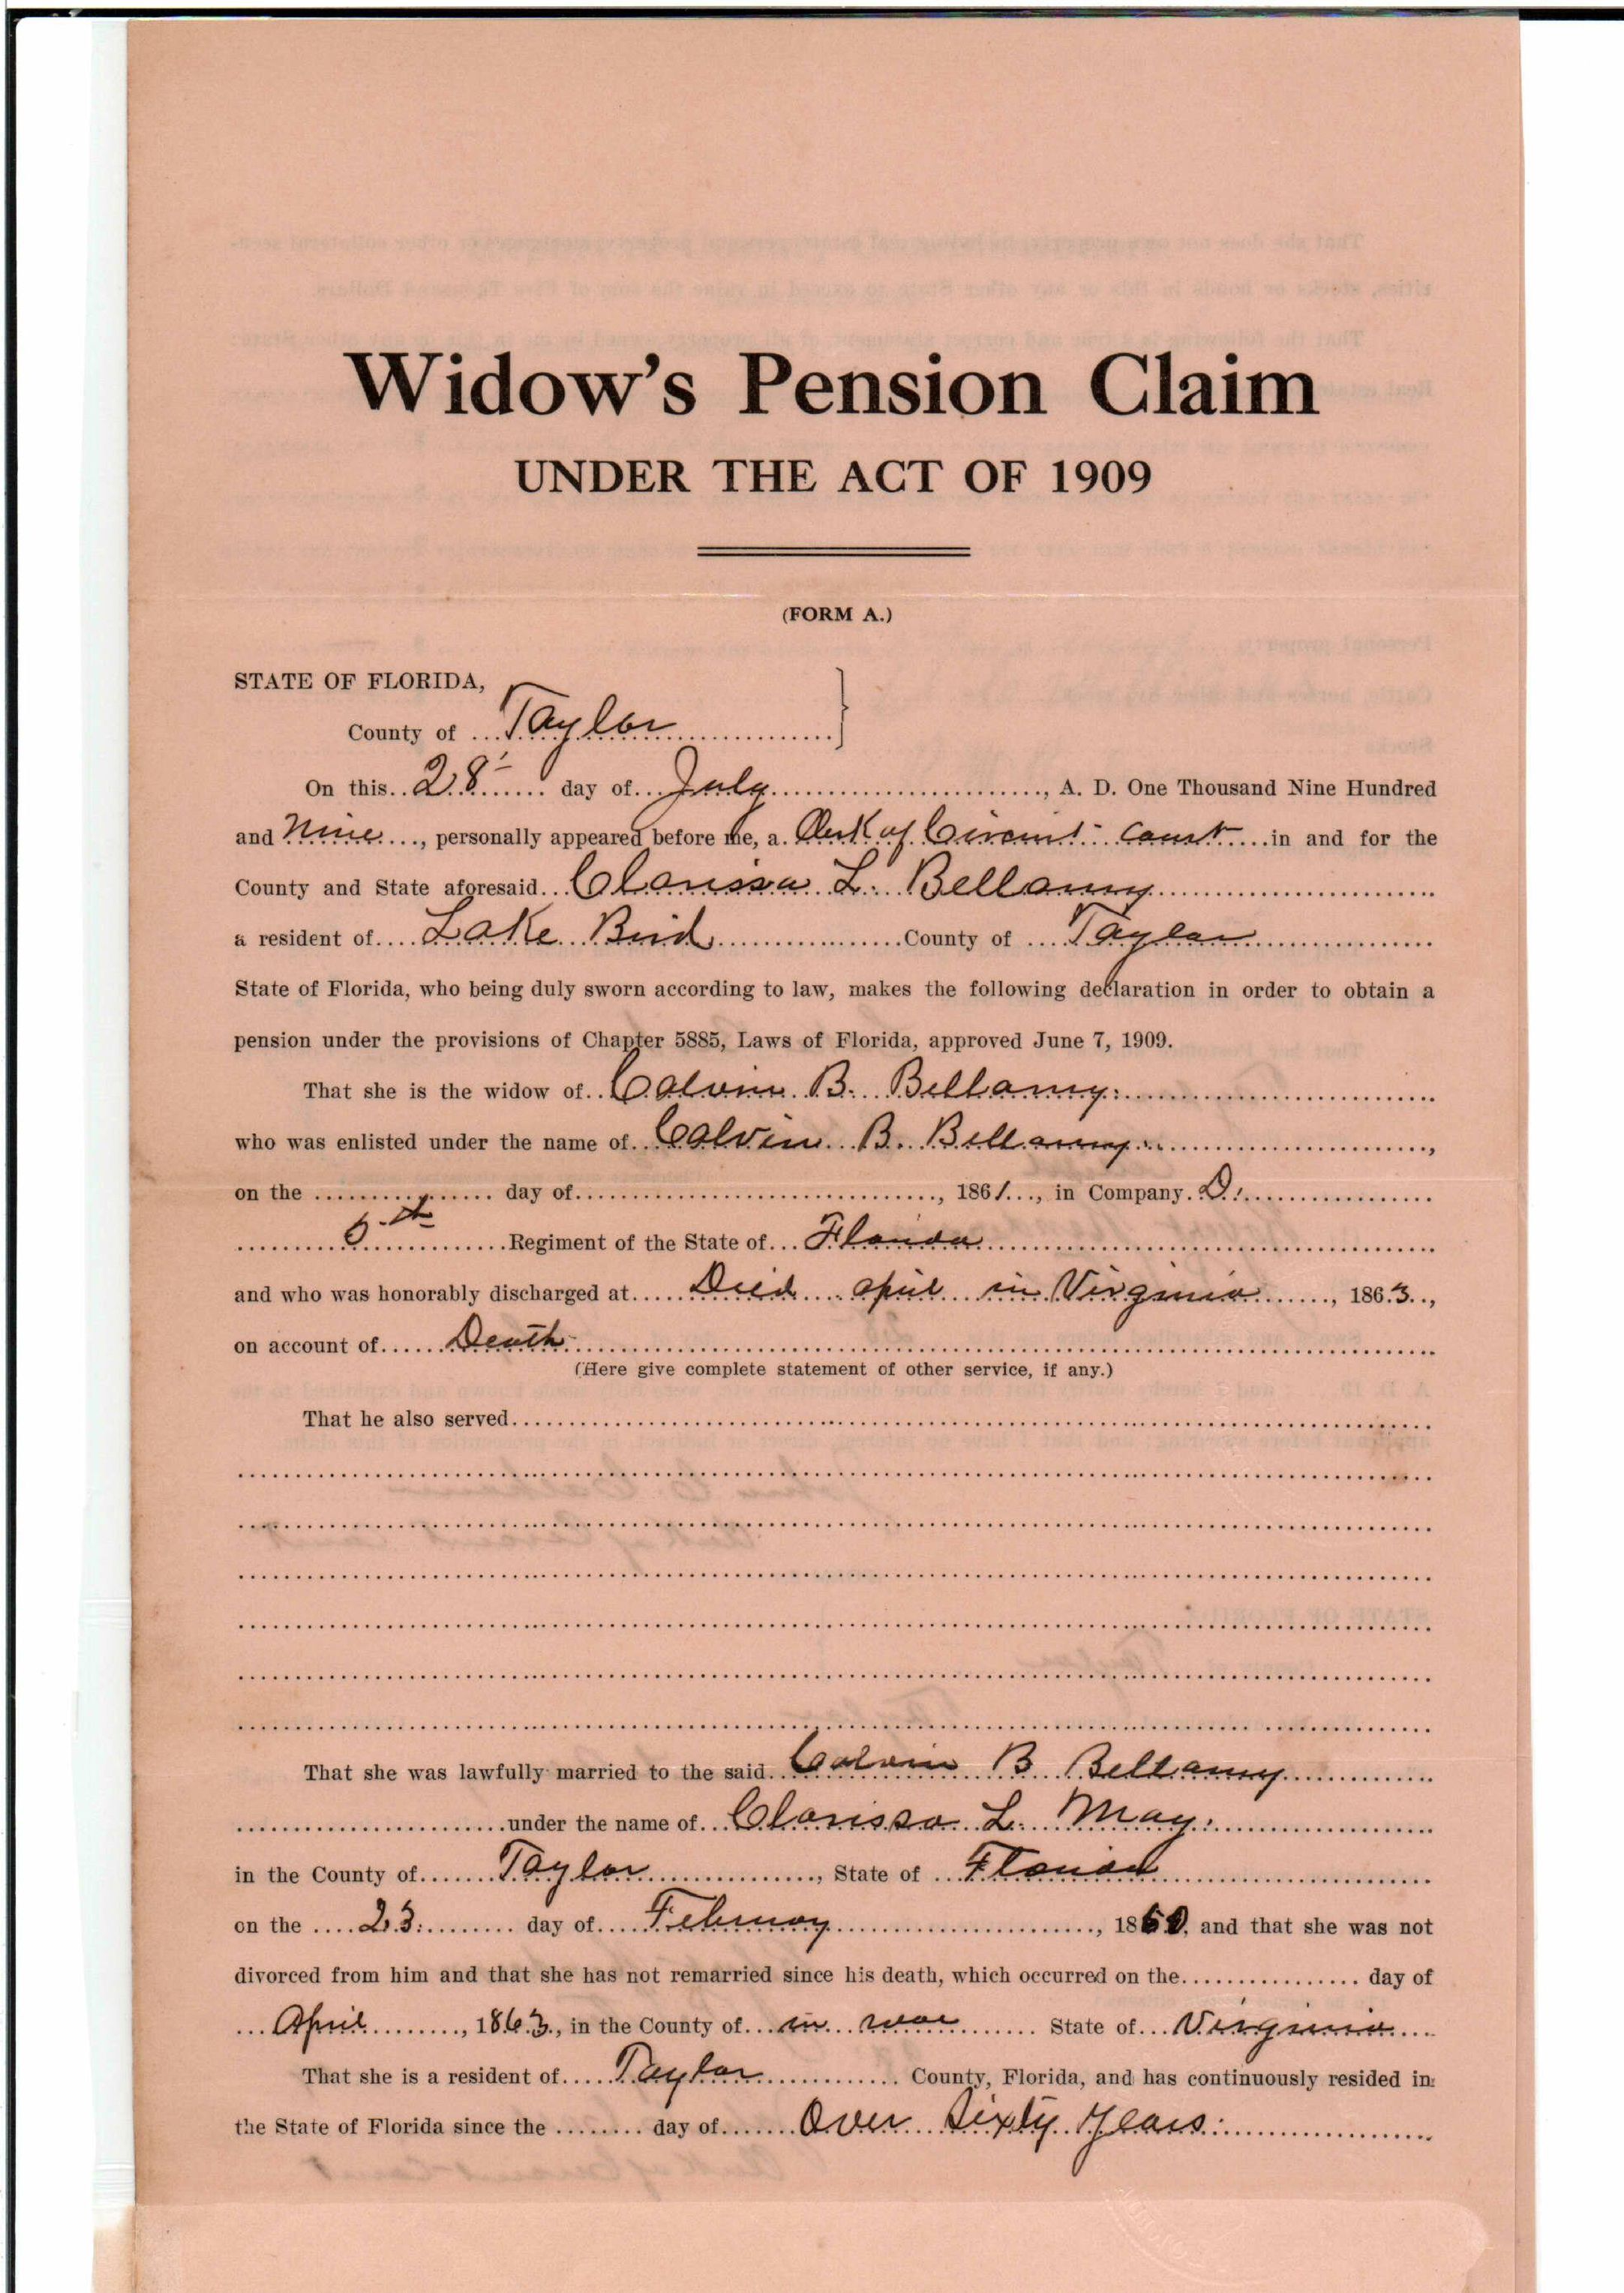 Widow's Pension Claim
UNDER THE ACT OF 1909
(FORM A.)
STATE OF FLORIDA,
County of Taylor
On this 28 day of July, A. D. One Thousand Nine Hundred
and Nine, personally appeared before me, a Clerk of Circuit Court in and for the
County and State aforesaid Clarissa L. Bellamy
a resident of Lake Bird County of Taylor
State of Florida, who being duly sworn according to law, makes the following declaration in order to obtain a
pension under the provisions of Chapter 5885, Laws of Florida, approved June 7, 1909.
That she is the widow of Calvin B. Bellamy.
who was enlisted under the name of Calvin B. Bellamy,
on the day of, 1861, in Company D.
Regiment of the State of Florida
and who was honorably discharged at Died april in Virginia, 1863,
on account of Death
(Here give complete statement of other service, if any.)
That he also served
That she was lawfully married to the said Calvin B Bellamy
under the name of Clarissa L. May.
in the County of Taylor, State of Florida
on the 23. day of February, and that she was not
divorced from him and that she has not remarried since his death, which occurred on the day of
April, 1863, in the County of in war State of Virginia
That she is a resident of Taylor County, Florida, and has continuously resided in
the State of Florida since the day of Over Sixty Years.